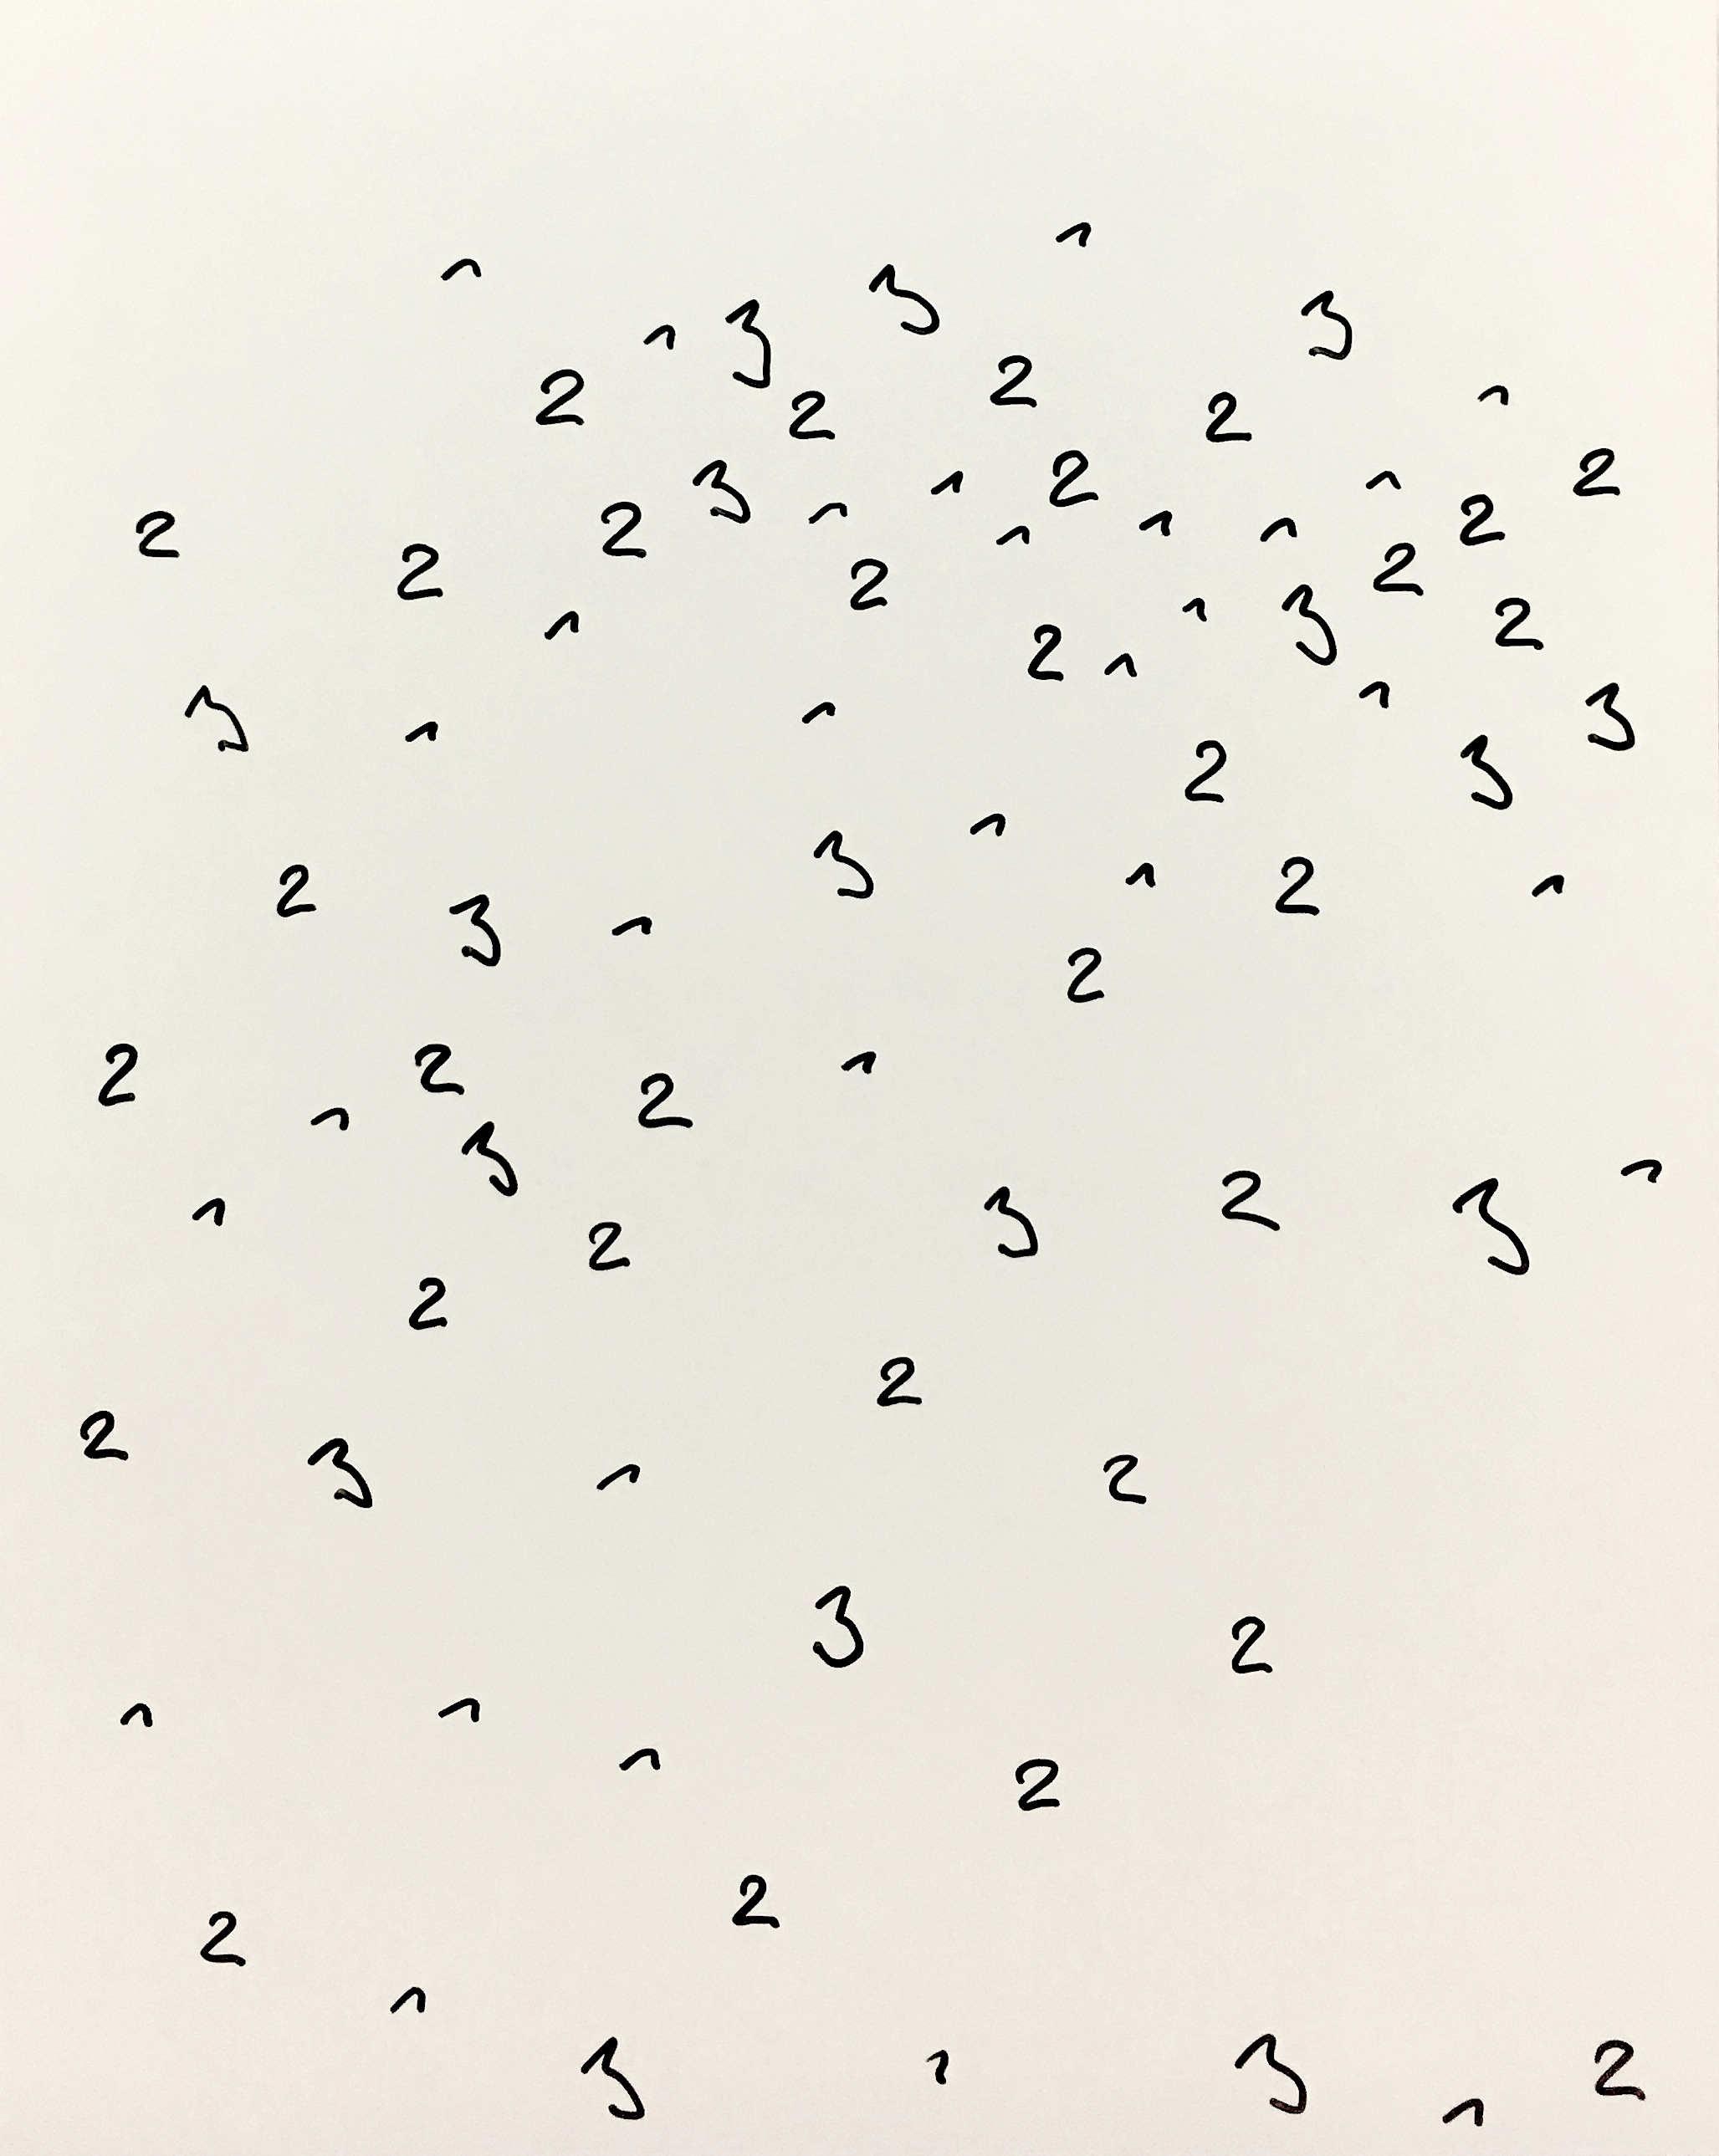 1 1
3 3
1 3
2 2 2 2 1
3 1 1 2 1 2
2 2 1 1 1 2
2 2 2
1 1 3 2
2 1 1
3 1 1 3
2 3
1
2 3 1 2 1
3 1
2
2 2 2 1
1 3
1 2 3 2 3 1
2
2
2 3 1 2
3 2
1 1 1 2
2 2
1
3 1 3 1 2